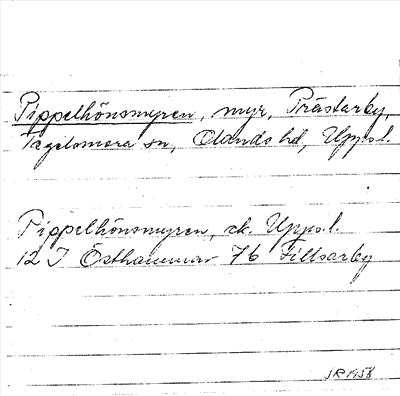 Pippelhönsmyren, myr, Prästarby,
Tegelsmora sn, Olands hd, Upps.l.
Pippelhönsmyren, ek. Upps.l.
12 I Östhammar 7b Fillsarby
SR 1958